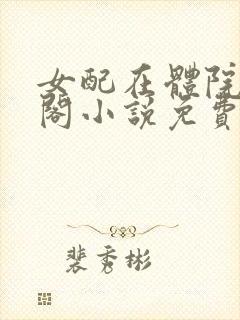 女配在體院
閣小說免費
裴秀彬